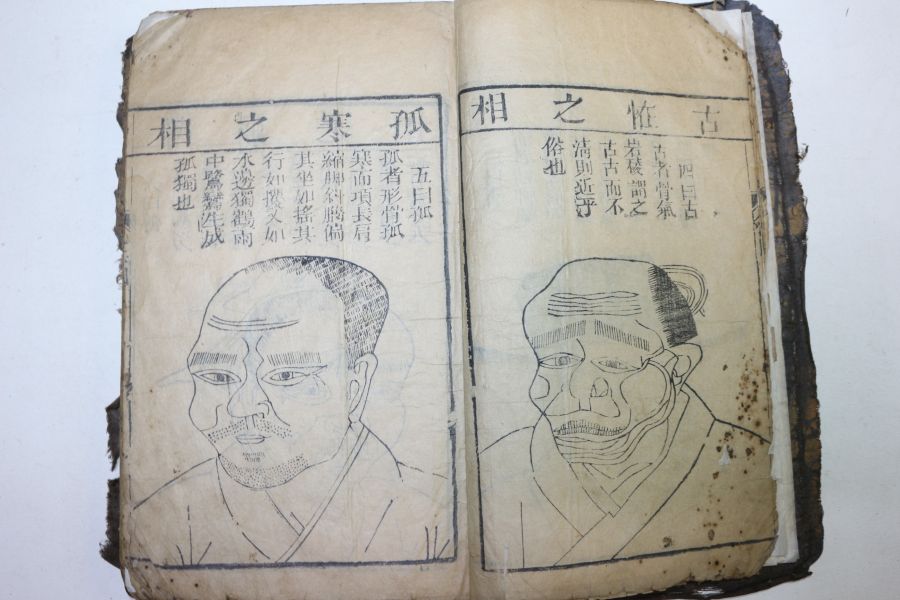 古恠之相
四曰古
古者骨氣
岩稜謂之
古古而不
清則近乎
俗也
孤寒之相
五曰孤
孤者形骨孤
寒而項長肩
縮脚斜腦偏
其坐如搖其
行如攫又如
水邊獨鶴雨
中鷺鷥生成
孤獨也